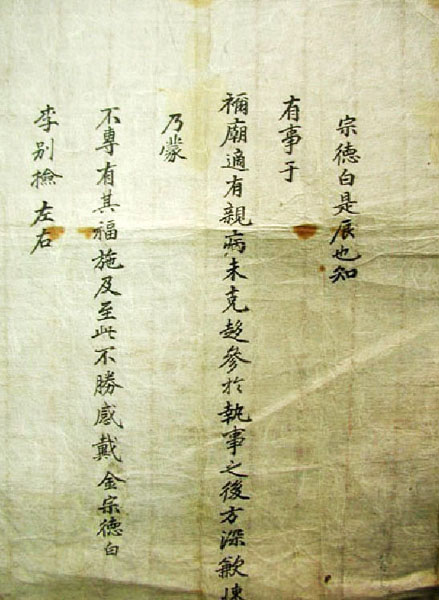 宗德白是辰也知
有事于
禰廟適有親病未克趍參於執事之後方深歉悚
乃蒙
不專有其福施及至此不勝感戴 金宗德白
李別撿 左右